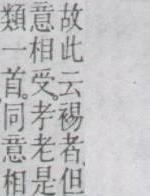 故此云裼者但
意相受。孝老是
類一首。同意相